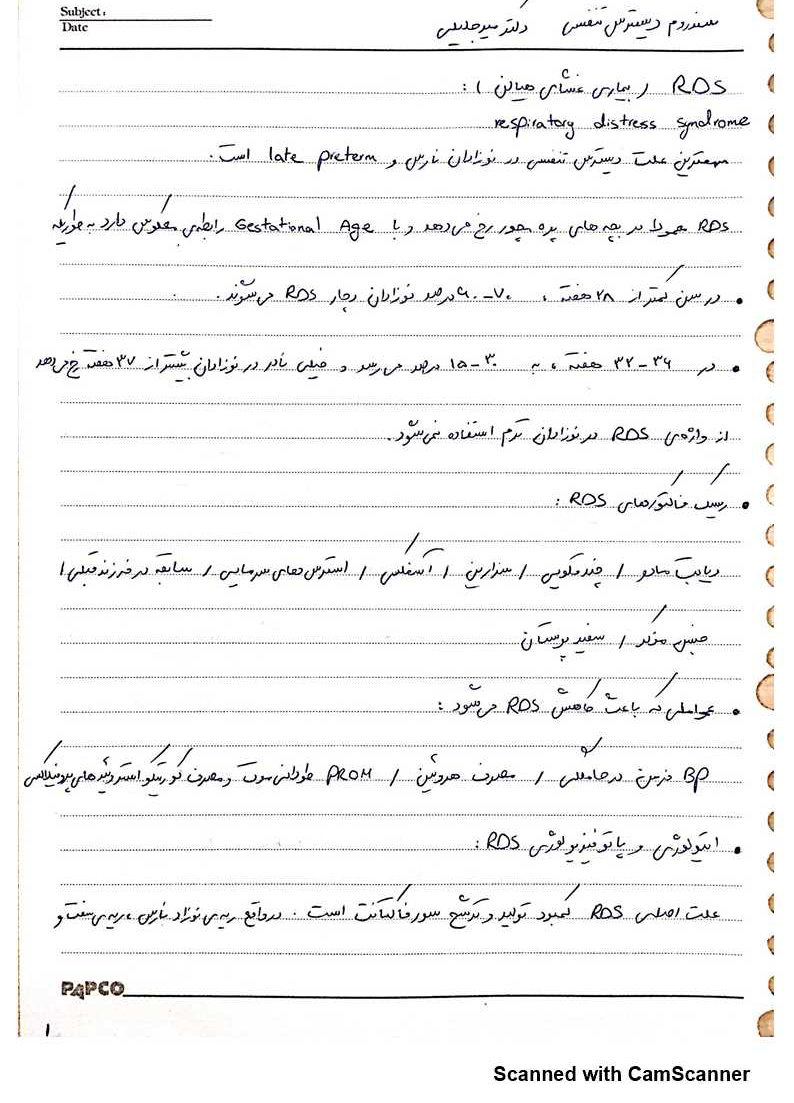 Subject:
Date
سندروم دیسترس تنفسی دکتر میرجلیلی
RDS (بیماری غشای هیالن):
respiratory distress syndrome
مهمترین علت دیسترس تنفسی در نوزادان نارس و late preterm است.
RDS عمدتا در بچه های پره مچور رخ می دهد و با Gestational Age رابطه ی معکوس دارد به طوریکه
• در سن کمتر از ۲۸ هفته، ۶۰-۷۰ درصد نوزادان دچار RDS می شوند.
• در ۳۲-۳۶ هفته، به ۱۵-۳۰ درصد می رسد و خیلی نادر در نوزادان بیشتر از ۳۷ هفته رخ می دهد
از واژه ی RDS در نوزادان ترم استفاده نمی شود.
• ریسک فاکتورهای RDS:
دیابت مادر / چندقلویی / سزارین / آسفکسی / استرس های سرمایی / سابقه در فرزند قبلی /
جنس مذکر / سفید پوستان
• عواملی که باعث کاهش RDS می شود:
BP مزمن در حاملگی / مصرف هروئین / PROM طولانی مدت و مصرف کورتیکواستروئیدهای پروفیلاکسی
• اتیولوژی و پاتوفیزیولوژی RDS:
علت اصلی RDS کمبود تولید و ترشح سورفاکتانت است. در واقع ریه ی نوزاد نارس، ریه ی سفت و
PAPCO
۱
Scanned with CamScanner